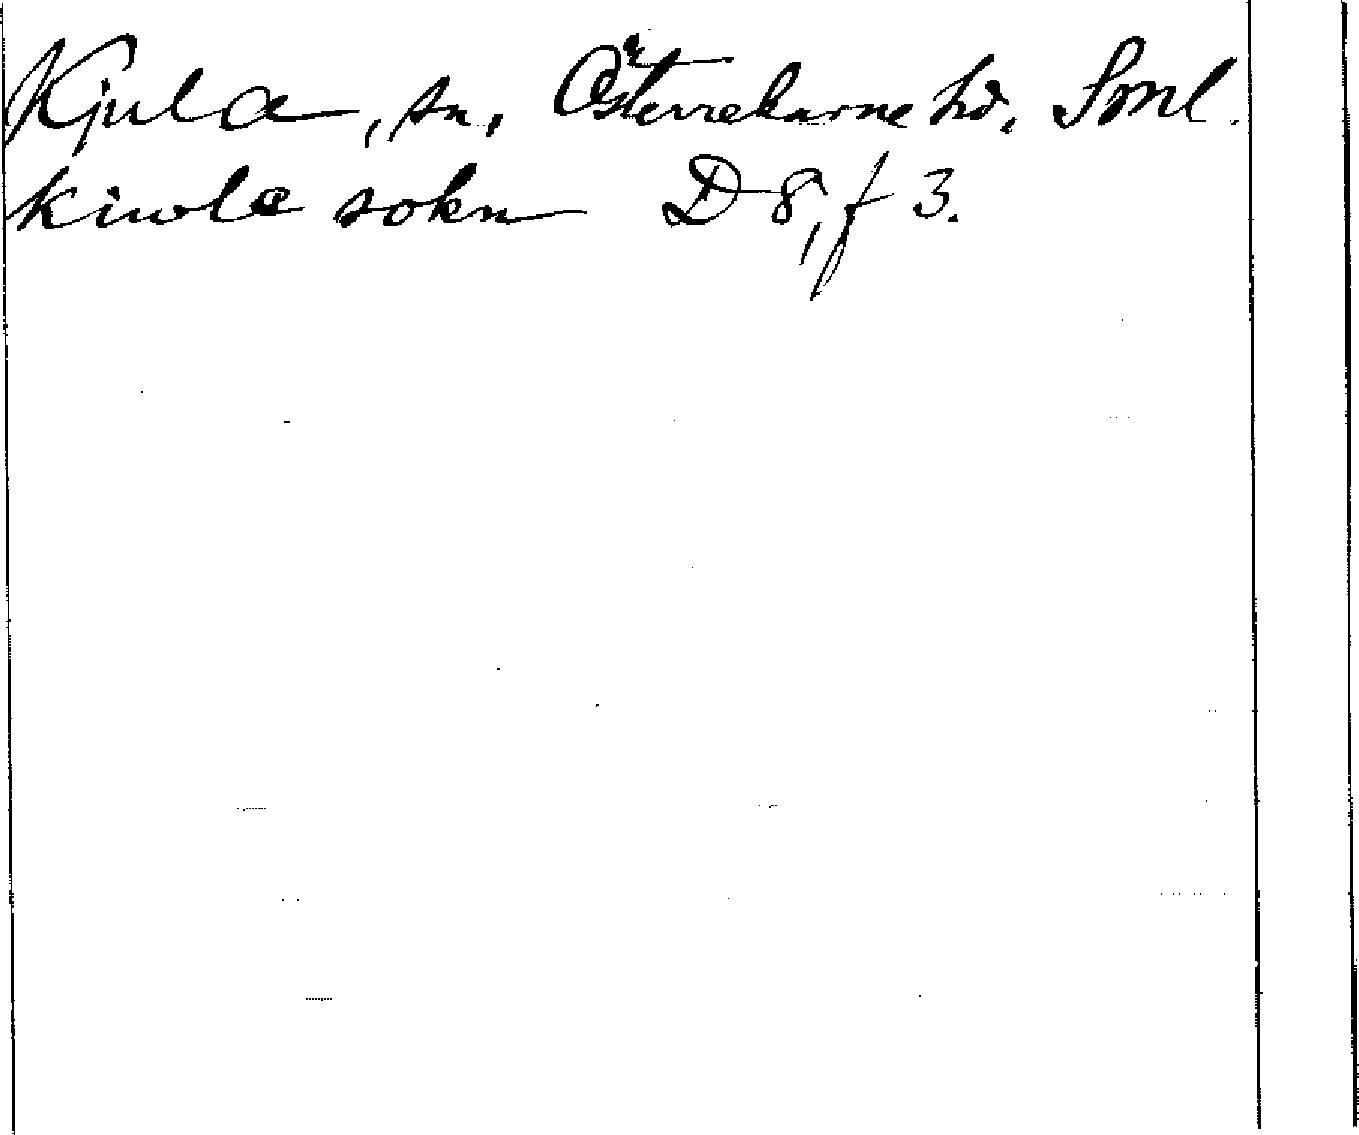 Kjula, sn, Österrekarne hd, Sml.
kiwlæ sokn D 8, f 3.